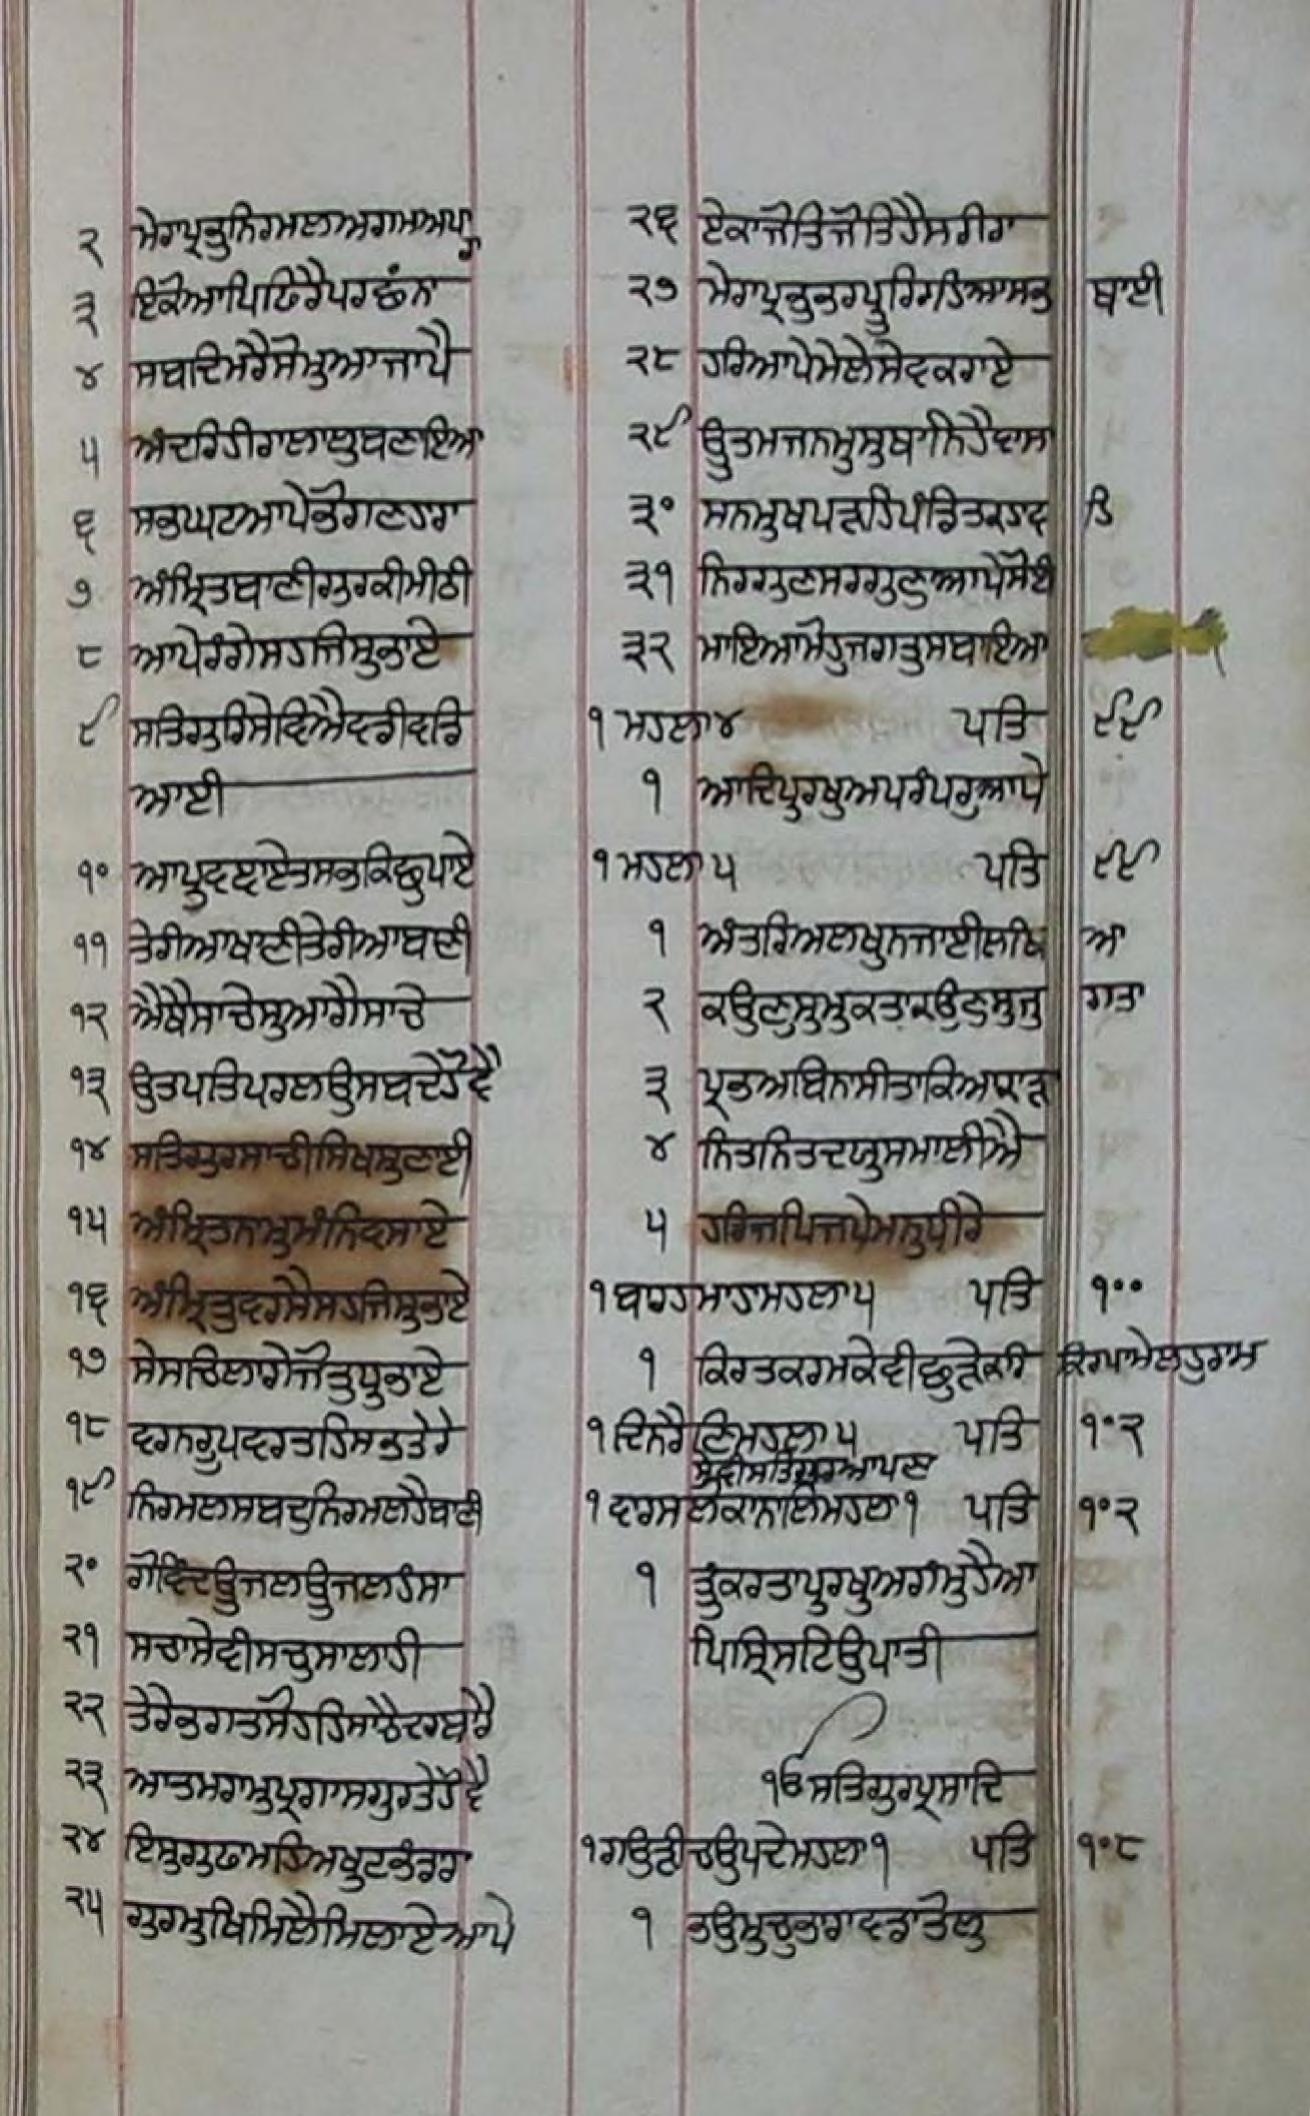 ੨ ਮੇਰਾਪ੍ਰਭੁਨਿਰਮਲਾਅਗਮਅਪਾਰਾ
੩ ਇਕੋਆਪਿਫਿਰੈਪਰਛੰਨਾ
੪ ਸਬਦਿਮਰੈਸੋਮੁਆਜਾਪੈ
੫ ਅੰਦਰਿਹੀਰਾਲਾਲੁਬਣਾਇਆ
੬ ਸਭਘਟਆਪੇਭੋਗਣਹਾਰਾ
੭ ਅੰਮ੍ਰਿਤਬਾਣੀਗੁਰਕੀਮੀਠੀ
੮ ਆਪੇਰੰਗੇਸਹਜਿਸੁਭਾਏ
੯ ਸਤਿਗੁਰਿਸੇਵਿਐਵਡੀਵਡਿ
ਆਈ
੧੦ ਆਪੁਵਞਾਏਤਸਭਕਿਛੁਪਾਏ
੧੧ ਤੇਰੀਆਖਾਣੀਤੇਰੀਆਬਾਣੀ
੧੨ ਐਥੈਸਾਚੇਸੁਆਗੈਸਾਚੇ
੧੩ ਉਤਪਤਿਪਰਲਉਸਬਦੇਹੋਵੈ
੧੪ ਸਤਿਗੁਰਸਾਚੀਸਿਖਸੁਣਾਈ
੧੫ ਅੰਮ੍ਰਿਤਨਾਮੁਮੰਨਿਵਸਾਏ
੧੬ ਅੰਮ੍ਰਿਤੁਵਰਸੈਸਹਜਿਸੁਭਾਏ
੧੭ ਸੇਸਚਿਲਾਗੇਜੋਤੁਧੁਭਾਏ
੧੮ ਵਰਨਰੂਪਵਰਤਹਿਸਭਤੇਰੇ
੧੯ ਨਿਰਮਲਸਬਦੁਨਿਰਮਲਹੈਬਾਣੀ
੨੦ ਗੋਵਿੰਦਊਜਲਊਜਲਹੰਸਾ
੨੧ ਸਚਾਸੇਵੀਸਚੁਸਾਲਾਹੀ
੨੨ ਤੇਰੇਭਗਤਸੋਹਹਿਸਾਚੈਦਰਬਾਰੈ
੨੩ ਆਤਮਰਾਮੁਪ੍ਰਗਾਸਗੁਰਤੇਹੋਵੈ
੨੪ ਇਸੁਗੁਫਾਮਹਿਅਖੁਟਭੰਡਾਰਾ
੨੫ ਗੁਰਮੁਖਿਮਿਲੈਮਿਲਾਏਆਪੇ
੨੬ ਏਕਾਜੋਤਿਜੋਤਿਹੈਸਰੀਰਾ
੨੭ ਮੇਰਾਪ੍ਰਭੁਭਰਪੂਰਿਰਹਿਆਸਭ ਥਾਈ
੨੮ ਹਰਿਆਪੇਮੇਲੇਸੇਵਕਰਾਏ
੨੯ ਊਤਮਜਨਮੁਸੁਥਾਨਿਹੈਵਾਸਾ
੩੦ ਮਨਮੁਖਪੜਹਿਪੰਡਿਤਕਹਾਵ ਹਿ
੩੧ ਨਿਰਗੁਣਸਰਗੁਣੁਆਪੇਸੋਈ
੩੨ ਮਾਇਆਮੋਹੁਜਗਤੁਸਬਾਇਆ
੧ ਮਹਲਾ ੪ ਪਤਿ ੯੯
੧ ਆਦਿਪੁਰਖੁਅਪਰੰਪਰੁਆਪੇ
੧ ਮਹਲਾ ੫ ਪਤਿ ੯੯
੧ ਅੰਤਰਿਅਲਖੁਨਜਾਈਲਖਿ ਆ
੨ ਕਉਣੁਸੁਮੁਕਤਾਕਉਣੁਸੁਜੁ ਗਤਾ
੩ ਪ੍ਰਭਅਬਿਨਾਸੀਤਾਕਿਆਕਾੜਾ
੪ ਨਿਤਨਿਤਦਯੁਸਮਾਲੀਐ
੫ ਹਰਿਜਪਿਜਪੇਮਨੁਧੀਰੇ
੧ ਬਾਰਹਮਾਹਾਮਹਲਾ ੫ ਪਤਿ ੧੦੦
੧ ਕਿਰਤਕਰਮਕੇਵੀਛੁੜੇਕਰਿ ਕਿਰਪਾਮੇਲਹੁਰਾਮ
੧ ਦਿਨਰੈਣਿਮਹਲਾ ੫ ਪਤਿ ੧੦੨
ਸੇਵੀਸਤਿਗੁਰਆਪਣਾ
੧ ਵਾਰਸਲੋਕਾਨਾਲਿਮਹਲਾ ੧ ਪਤਿ ੧੦੨
੧ ਤੂੰਕਰਤਾਪੁਰਖੁਅਗੰਮੁਹੈਆ
ਪਿਸ੍ਰਿਸਟਿਉਪਾਤੀ
ੴਸਤਿਗੁਰਪ੍ਰਸਾਦਿ
੧ ਗਉੜੀਚਉਪਦੇਮਹਲਾ ੧ ਪਤਿ ੧੦੮
੧ ਭਉਮੁਚੁਭਾਰਾਵਡਾਤੋਲੁ